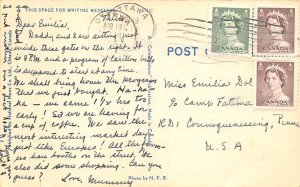 THIS SPACE FOR WRITING MESSAGES
Dear Emilia!
Daddy and I are sitting just
inside these gates on the right. It
is 5 P.M. and a program of carillon bells
is supposed to start any time.
We shall bring home a program
that we just bought. Ha-ha
ha - we came 1½ hrs too
early! So we are having
a cup of coffee. We saw the
most interesting market day
just like Europe! All the
us have booths on the street. We
also did some shopping. Can you
guess? Love, Mummy
OTTAWA
POST
CANADA
CANADA
CANADA
Miss Emilia Dol
% Camp Fatima
RD1 Connoquenessing, Penna
U.S.A
Photo by N.F.B.